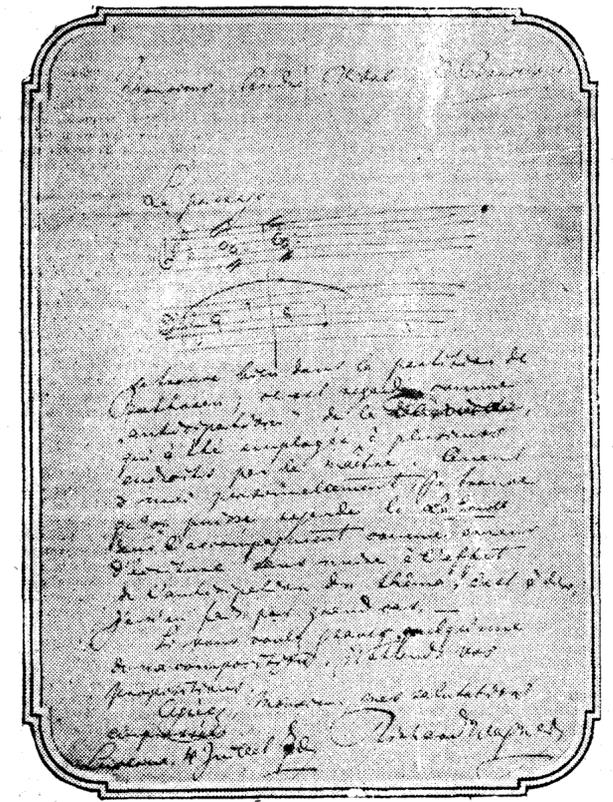 Monsieur
Le passage
se trouve bien dans la partition de
Beethoven, et est regardé comme
„anticipation“ de la
qui a été employée à plusieurs
endroits par le maître. Quant
à moi personnellement je trouve
qu'on puisse regarder le
dans l'accompagnement comme erreur
d'écriture sans nuire à l'effet
de l'anticipation du thème, c'est à dire,
je n'en fais pas grand cas. —
Si vous voulez graver quelqu'une
de ma composition, j'attends vos
propositions.
Agréez, Monsieur mes salutations
empressées
Lucerne, 4 Juillet Richard Wagner